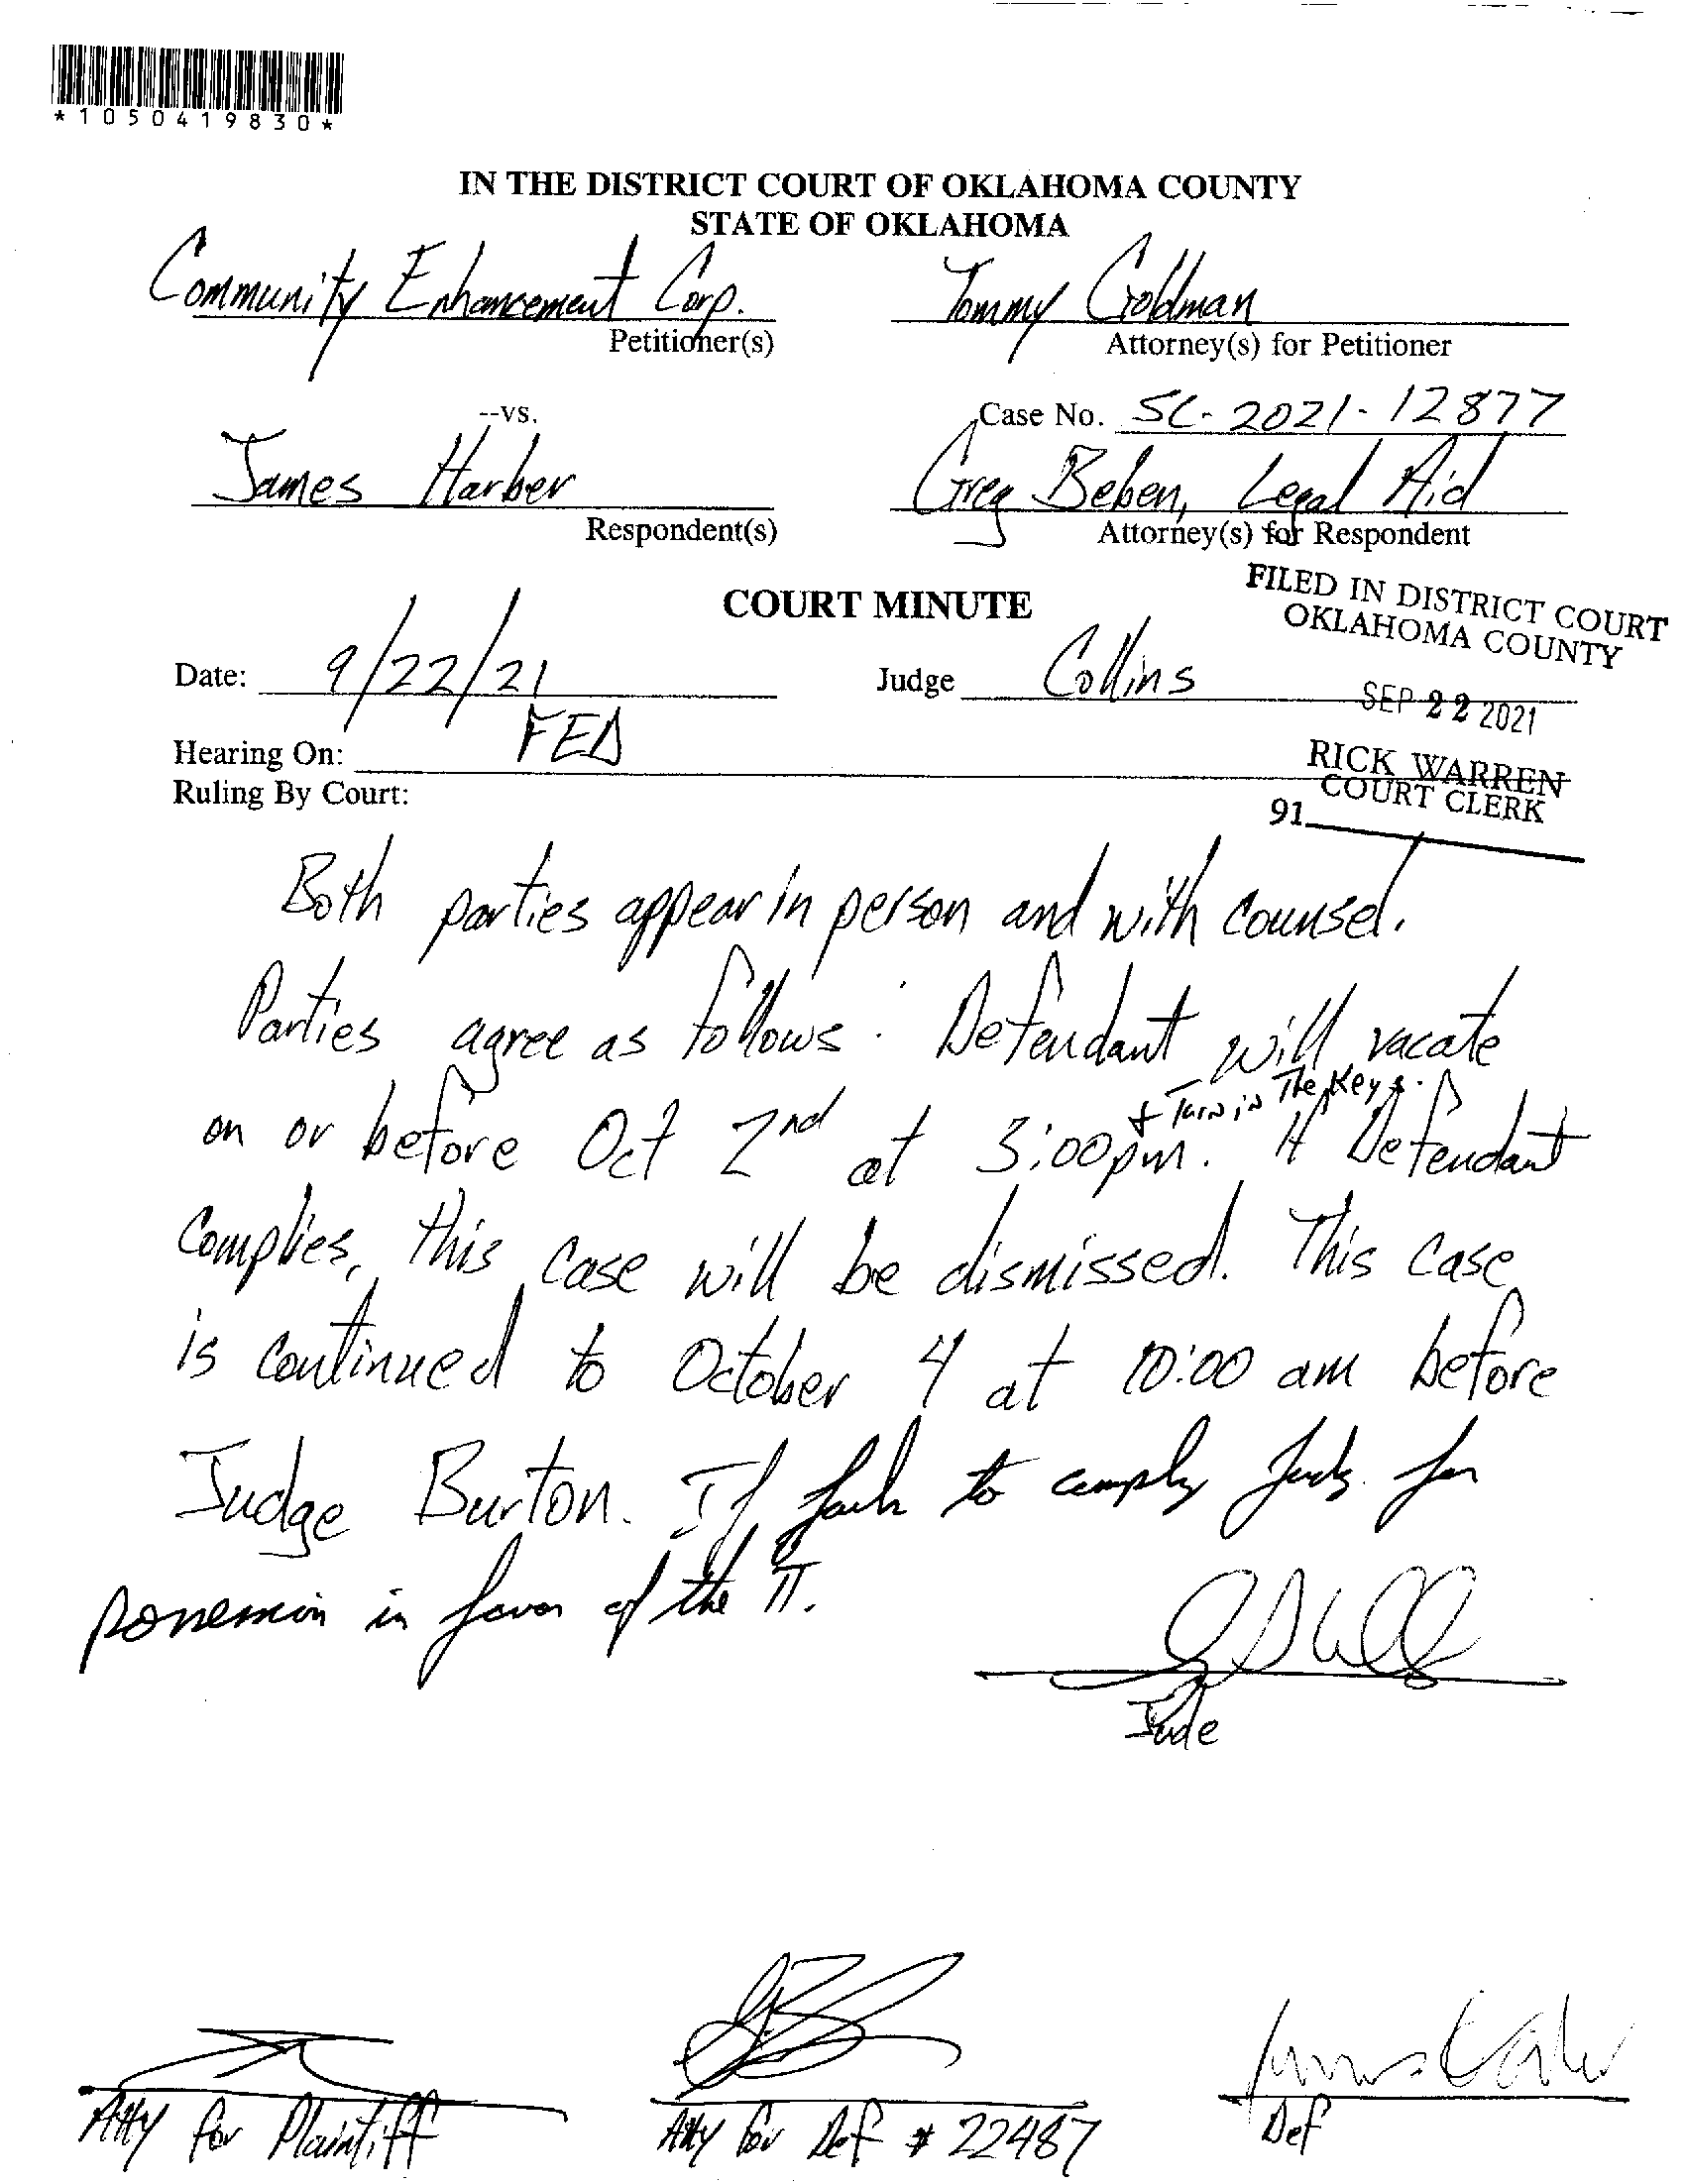 *1050419830*
IN THE DISTRICT COURT OF OKLAHOMA COUNTY
STATE OF OKLAHOMA
Community Enhancement Corp.
Petitioner(s)
Tommy Goldman
Attorney(s) for Petitioner
--vs.
Case No. SC-2021-12877
James Harber
Respondent(s)
Greg Beben, Legal Aid
Attorney(s) for Respondent
COURT MINUTE
FILED IN DISTRICT COURT
OKLAHOMA COUNTY
Date: 9/22/21
Judge Collins
SEP 22 2021
Hearing On: FED
RICK WARREN
COURT CLERK
Ruling By Court:
91
Both parties appear in person and with counsel.
Parties agree as follows: Defendant will vacate
+ Turn in The Keys.
on or before Oct 2nd at 3:00pm. If Defendant
complies, this case will be dismissed. This case
is continued to October 4 at 10:00 am before
Judge Burton. If fails to comply Judg. for
possession in favor of the π.
Jude
Atty for Plaintiff
Atty for Def # 22487
Def